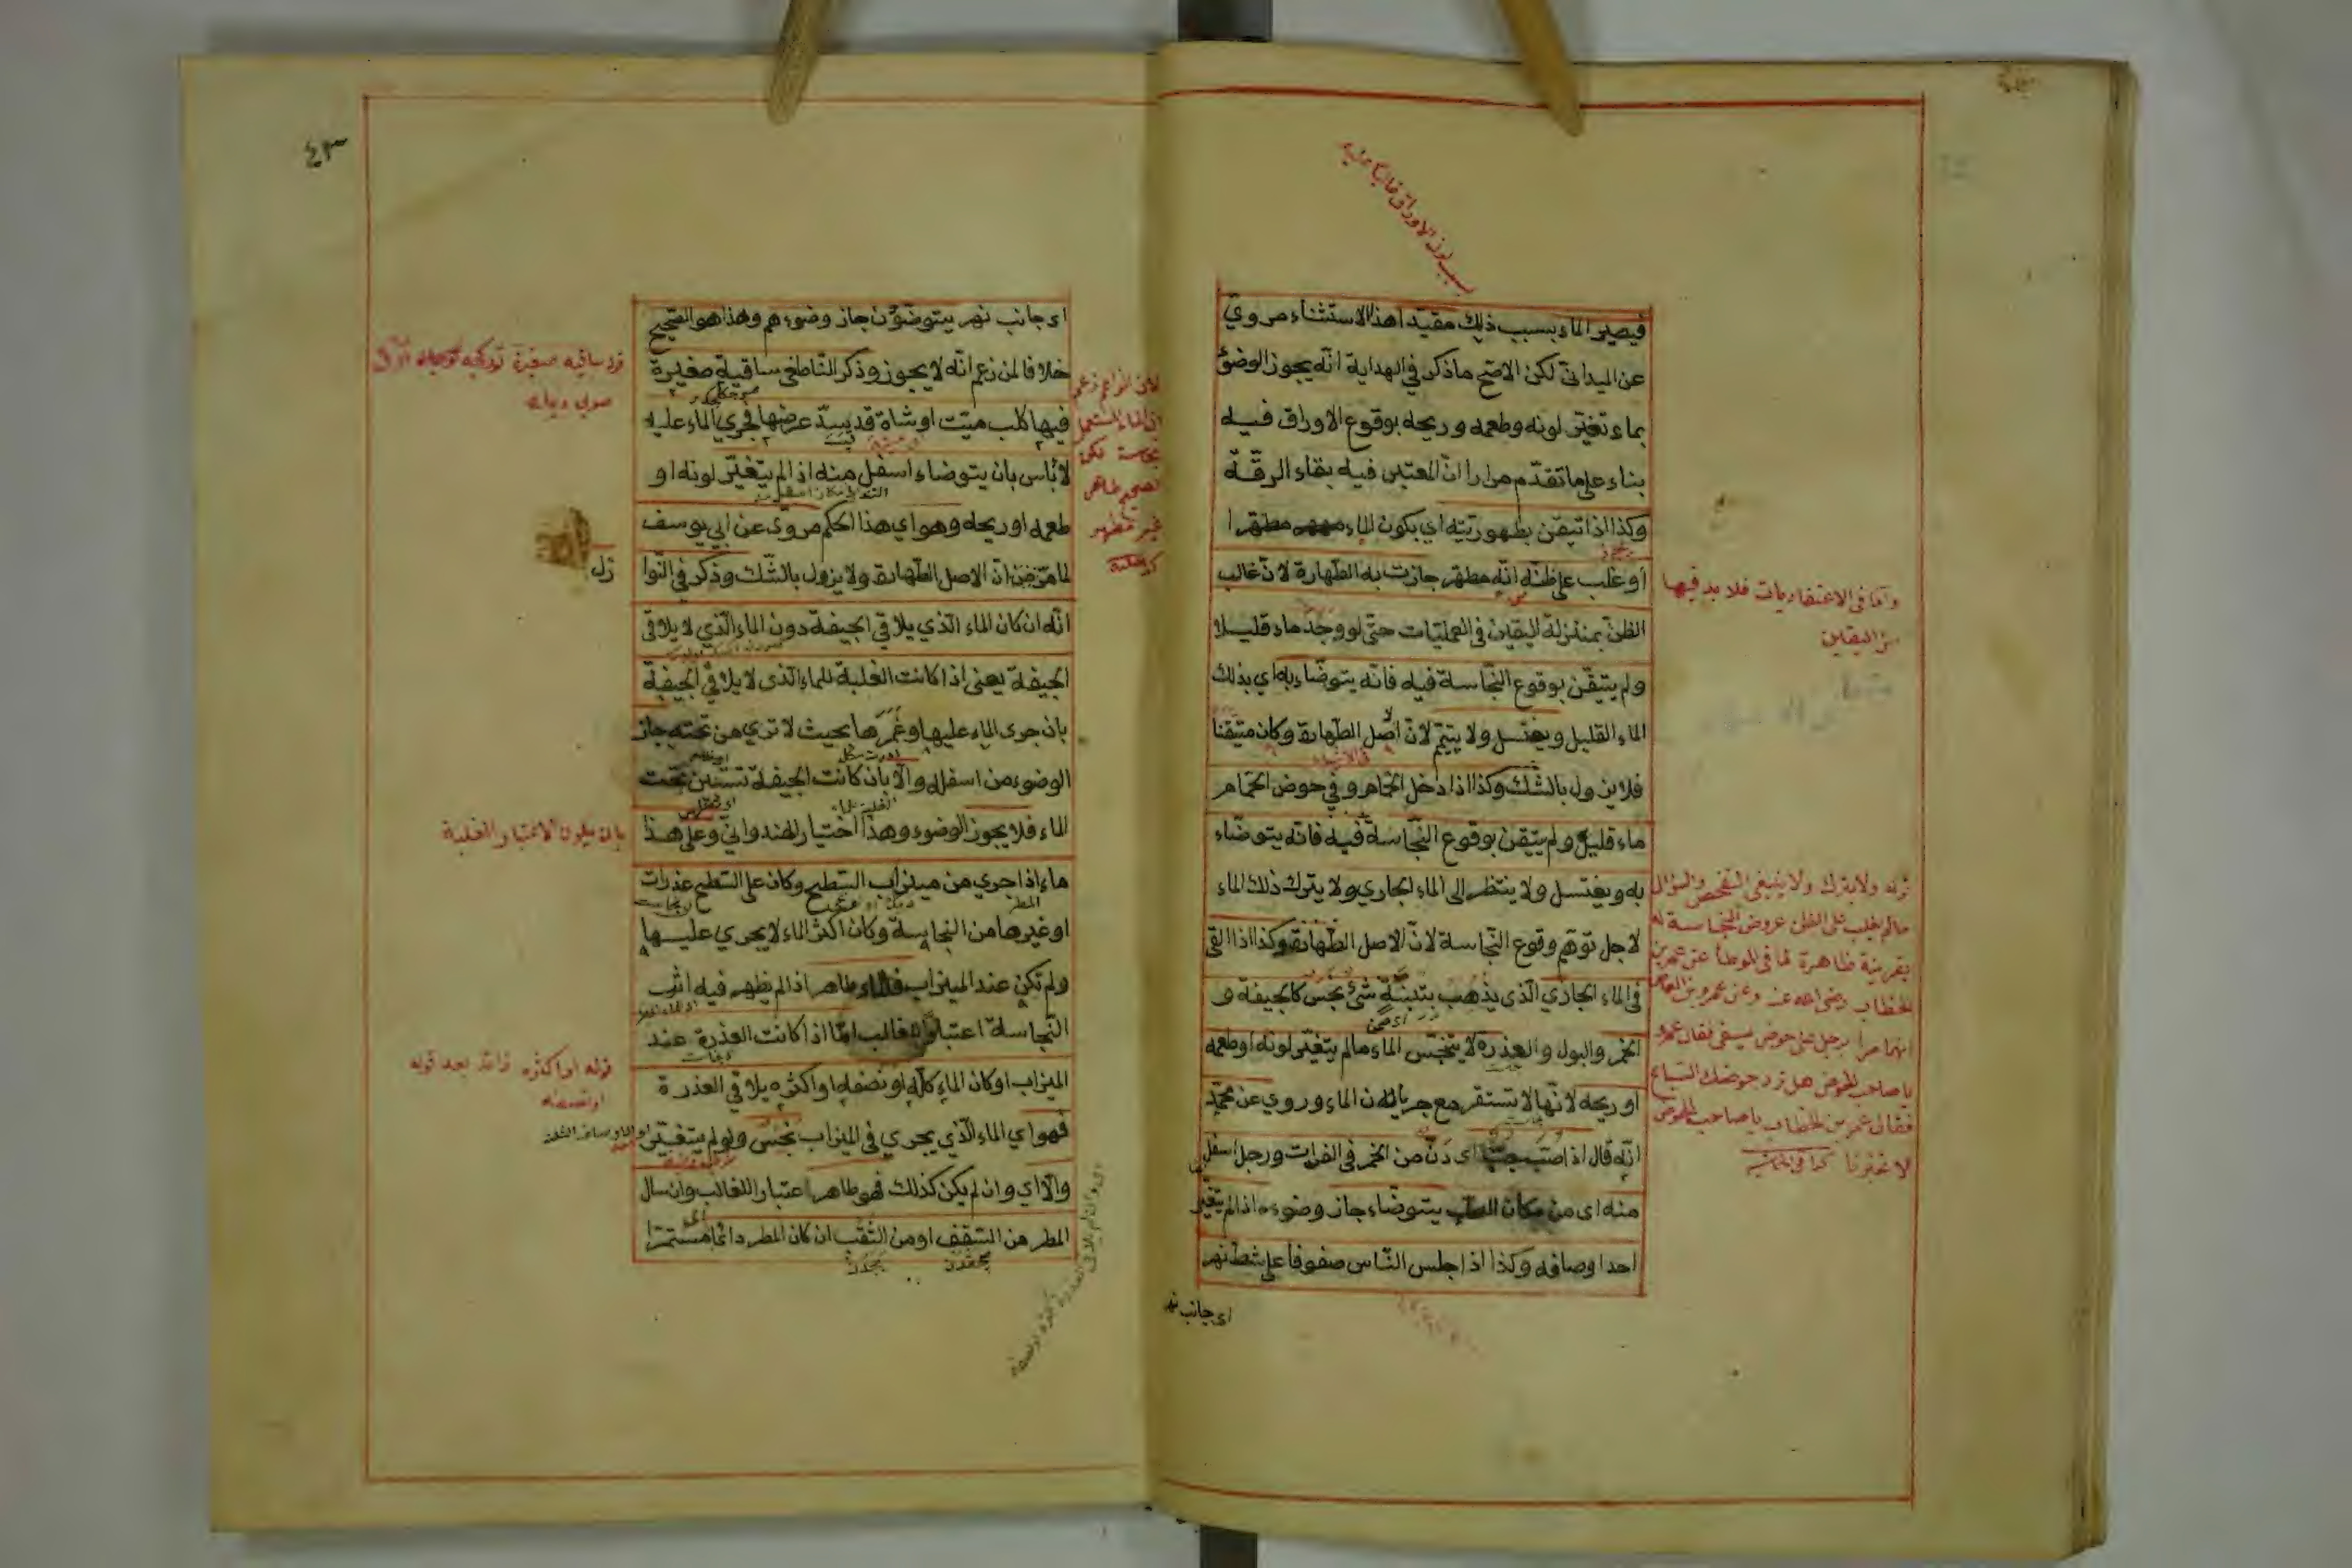 فيصير الماء بسبب ذلك مقيدا هذا الاستثناء مروي
عن الميداني لكن الاصح ما ذكر في الهداية انه يجوز الوضوء
بماء تغير لونه وطعمه وريحه بوقوع الاوراق فيه
بناء على ما تقدم مرارا ان المعتبر فيه بقاء الرقة
وكذا اذا تيقن بطهوريته اي بكون الماء مطهرا
او غلب على ظنه انه مطهر جازت به الطهارة لان غالب
الظن بمنزلة اليقين في العمليات حتى لو وجد ماء قليلا
ولم يتيقن بوقوع النجاسة فيه فانه يتوضاء به اي بذلك
الماء القليل ويغتسل ولا يتيمم لان اصل الطهارة وكان متيقنا
فلا يزول بالشك وكذا اذا دخل الحمام وفي حوض الحمام
ماء قليل ولم يتيقن بوقوع النجاسة فيه فانه يتوضاء
به ويغتسل ولا ينتظر الى الماء الجاري ولا يترك ذلك الماء
لاجل توهم وقوع النجاسة لان الاصل الطهارة وكذا اذا القى
في الماء الجاري الذي يذهب بتبنة شئ نجس كالجيفة و
الخمر والبول والعذرة لا يتنجس الماء مالم يتغير لونه او طعمه
او ريحه لانها لا تستقر مع جريان الماء وروي عن محمد
انه قال اذا صب حب اي دن من الخمر في الفرات ورجل اسفل
منه اى من مكان الصب يتوضاء جاز وضوءه اذا لم يتغير
احد اوصافه وكذا اذا جلس الناس صفوفا على شط نهر
اى جانب نهر
واما في الاعتقاديات فلا بد فيها
من اليقين
قوله ولا يترك ولا ينبغي التفحص والسؤال
مالم يغلب على الظن عروض النجاسة له
بقرينة ظاهرة لما في الموطأ عن عمر بن
الخطاب رضى الله عنه وعن عمرو بن العاص
انهما مرا برجل على حوض يسقى فقال عمرو
يا صاحب الحوض هل ترد حوضك السباع
فقال عمر بن الخطاب يا صاحب الحوض
لا تخبرنا
٤٣
اى جانب نهر يتوضؤن جاز وضوءهم وهذا هو الصحيح
خلافا لمن زعم انه لا يجوز وذكر الناطفي ساقية صغيرة
فيها كلب ميت او شاة قد يسد عرضها فجري الماء عليه
لا باس بان يتوضاء اسفل منه اذا لم يتغير لونه او
طعمه او ريحه وهو اي هذا الحكم مروى عن ابي يوسف
لما مر من ان الاصل الطهارة ولا يزول بالشك وذكر في النوا
زل
انه ان كان الماء الذي يلاقي الجيفة دون الماء الذي لا يلاقى
الجيفة يعنى اذا كانت الغلبة للماء الذى لا يلاقي الجيفة
بان جرى الماء عليها وغمرها بحيث لا ترى من تحته جاز
الوضوء من اسفله والا بان كانت الجيفة تستبين تحت
الماء فلا يجوز الوضوء وهذا اختيار الهندواني وعلى هذا
ماء اذا جرى من ميزاب السطح وكان على السطح عذرات
او غيرها من النجاسة وكان اكثر الماء لا يجري عليها
ولم تكن عند الميزاب فالماء طاهر اذا لم يظهر فيه اثر
النجاسة اعتبارا للغالب اما اذا كانت العذرة عند
الميزاب او كان الماء كله او نصفه او اكثره يلاقي العذرة
فهو اي الماء الذي يجري في الميزاب نجس ولو لم يتغير
والا اي وان لم يكن كذلك فهو طاهر اعتبارا للغالب وان سال
المطر من السقف او من الثقب ان كان المطر دائما مستمرا
بان يكون الاعتبار الغلبة
قوله او اكثره زائد بعد قوله
او نصفه
ان الماء المستعمل
غير مطهر